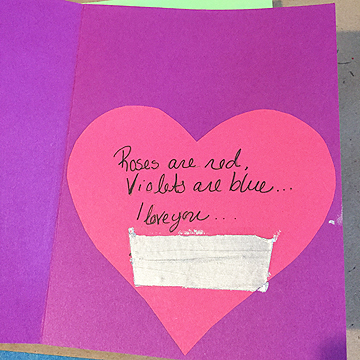 Roses are red,
Violets are blue...
I love you...